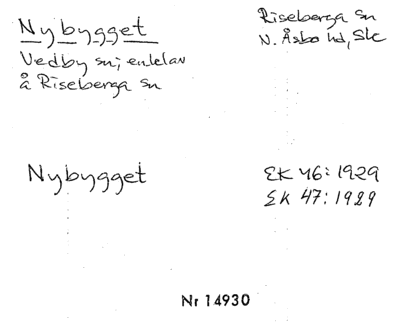 Nybygget
Riseberga sn
N. Åsbo hd, Sk
Vedby sn; enklav
å Riseberga sn
Nybygget
EK 46: 1929
EK 47: 1929
Nr 14930